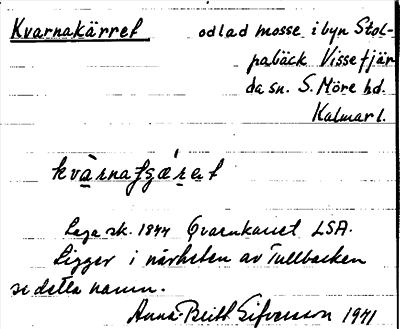 Kvarnakärret odlad mosse i byn Stol-
pabäck Vissefjär
da sn. S. Möre hd.
Kalmar l.
Laga sk. 1844 Qvarnkärret LSA.
Ligger i närheten av Tullbacken
se detta namn.
Anna-Britt Sifvesson 1941